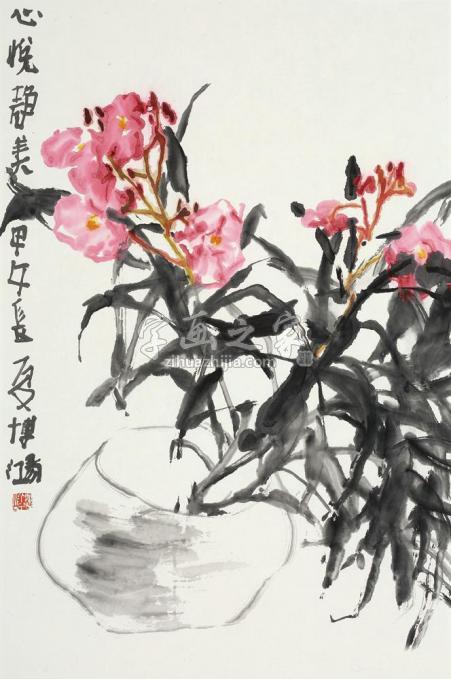 心悦静美甲午长夏博
字画之家
zihuazhijia.com